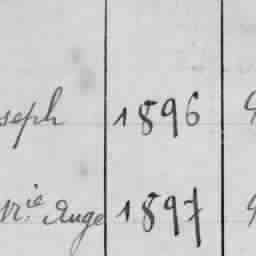 seph 1896
M.ie Ange 1897